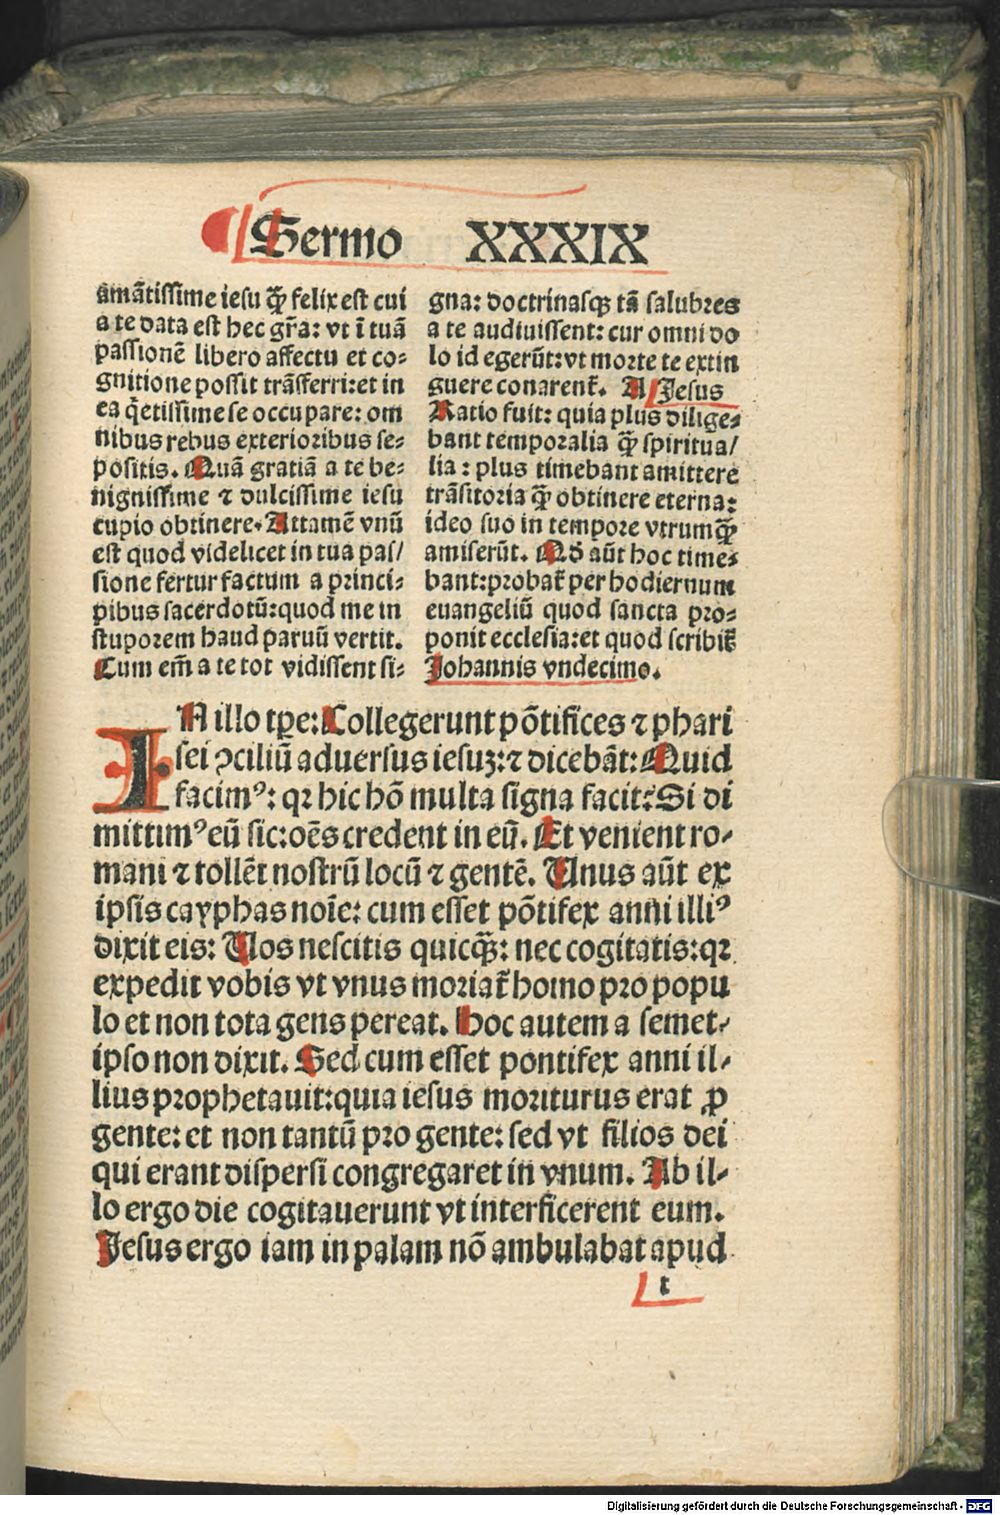 Sermo XXXIX
amãtissime iesu q̃ʒ felix est cui
a te data est hec gr̃a: vt ĩ tuã
passionẽ libero affectu et co-
gnitione possit trãsferri: et in
ea q̃etissime se occupare: om
nibus rebus exterioribus se-
positis. Quã gratiã a te be-
nignissime ⁊ dulcissime iesu
cupio obtinere. Attamẽ vnũ
est quod videlicet in tua pas/
sione fertur factum a princi-
pibus sacerdotũ: quod me in
stuporem haud paruũ vertit.
Cum em̃ a te tot vidissent si-
gna: doctrinasqꝫ tã salubres
a te audiuissent: cur omni do
lo id egerũt: vt morte te extin
guere conarent᷑. A Jesus
Ratio fuit: quia plus dilige-
bant temporalia q̃ʒ spiritua/
lia: plus timebant amittere
trãsitoria q̃ʒ obtinere eterna:
ideo suo in tempore vtrumq̃ʒ
amiserũt. Qõ aũt hoc time-
bant: probat᷑ per hodiernum
euangeliũ quod sancta pro-
ponit ecclesia: et quod scribit᷑
Johannis vndecimo.
IN illo tp̃e: Collegerunt põtifices ⁊ phari
sei ꝯciliũ aduersus iesuʒ: ⁊ dicebãt: Quid
facimꝰ: qꝛ hic hõ multa signa facit: Si di
mittimꝰ eũ sic: oẽs credent in eũ. Et venient ro-
mani ⁊ tollẽt nostrũ locũ ⁊ gentẽ. Unus aũt ex
ipsis cayphas noĩe: cum esset põtifex anni illiꝰ
dixit eis: Uos nescitis quicq̃ʒ: nec cogitatis: qꝛ
expedit vobis vt vnus moriat᷑ homo pro popu
lo et non tota gens pereat. Hoc autem a semet-
ipso non dixit. Sed cum esset pontifex anni il-
lius prophetauit: quia iesus moriturus erat ꝓ
gente: et non tantũ pro gente: sed vt filios dei
qui erant dispersi congregaret in vnum. Ab il-
lo ergo die cogitauerunt vt interficerent eum.
Jesus ergo iam in palam nõ ambulabat apud
t
Digitalisierung gefördert durch die Deutsche Forschungsgemeinschaft - DFG